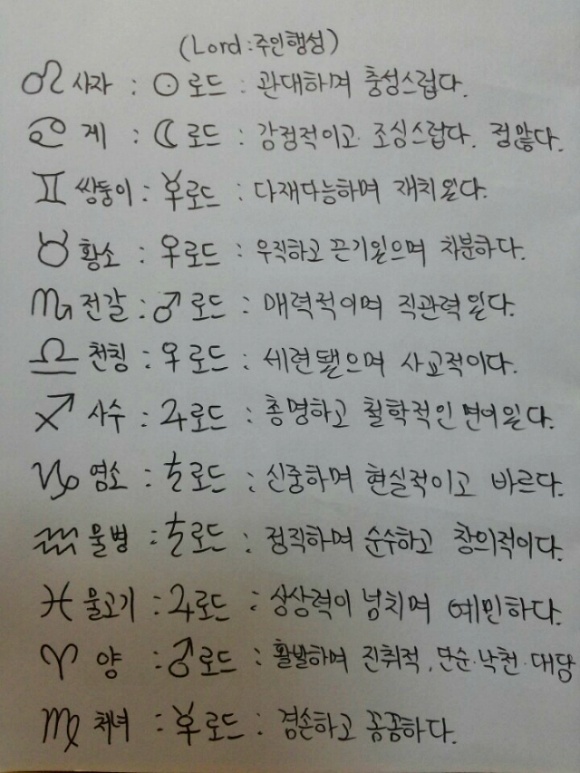 (Lord:주인행성)
♌ 사자 : ☉ 로드 : 관대하며 충성스럽다.
♋ 게 : ☾ 로드 : 감정적이고 조심스럽다. 정많다.
♊ 쌍둥이 : ☿ 로드 : 다재다능하며 재치있다.
♉ 황소 : ♀ 로드 : 우직하고 끈기있으며 차분하다.
♏ 전갈 : ♂ 로드 : 매력적이며 직관력있다.
♎ 천칭 : ♀ 로드 : 세련됐으며 사교적이다.
♐ 사수 : ♃ 로드 : 총명하고 철학적인 면이있다.
♑ 염소 : ♄ 로드 : 신중하며 현실적이고 바르다.
♒ 물병 : ♄ 로드 : 정직하며 순수하고 창의적이다.
♓ 물고기 : ♃ 로드 : 상상력이 넘치며 예민하다.
♈ 양 : ♂ 로드 : 활발하며 진취적, 단순·낙천·대담
♍ 처녀 : ☿ 로드 : 겸손하고 꼼꼼하다.